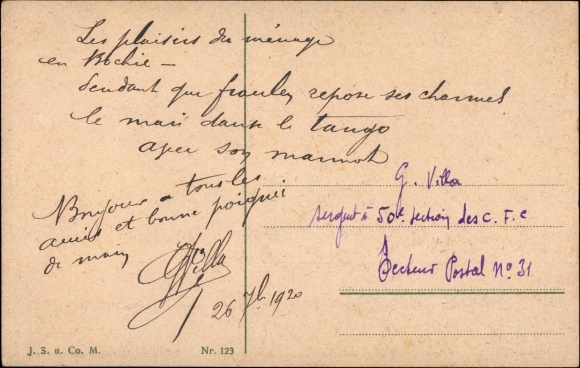 Les plaisirs du ménage
en Bochie –
Pendant que fraulen repose ses charmes
le mari danse le tango
avec son marmot
Bonjour à tous les
amis et bonne poignée
de main
GVilla
26 7bre 1920
G. Villa
sergent à 50e section des C. F. C
Secteur Postal No 31
J. S. u. Co. M.
Nr. 123